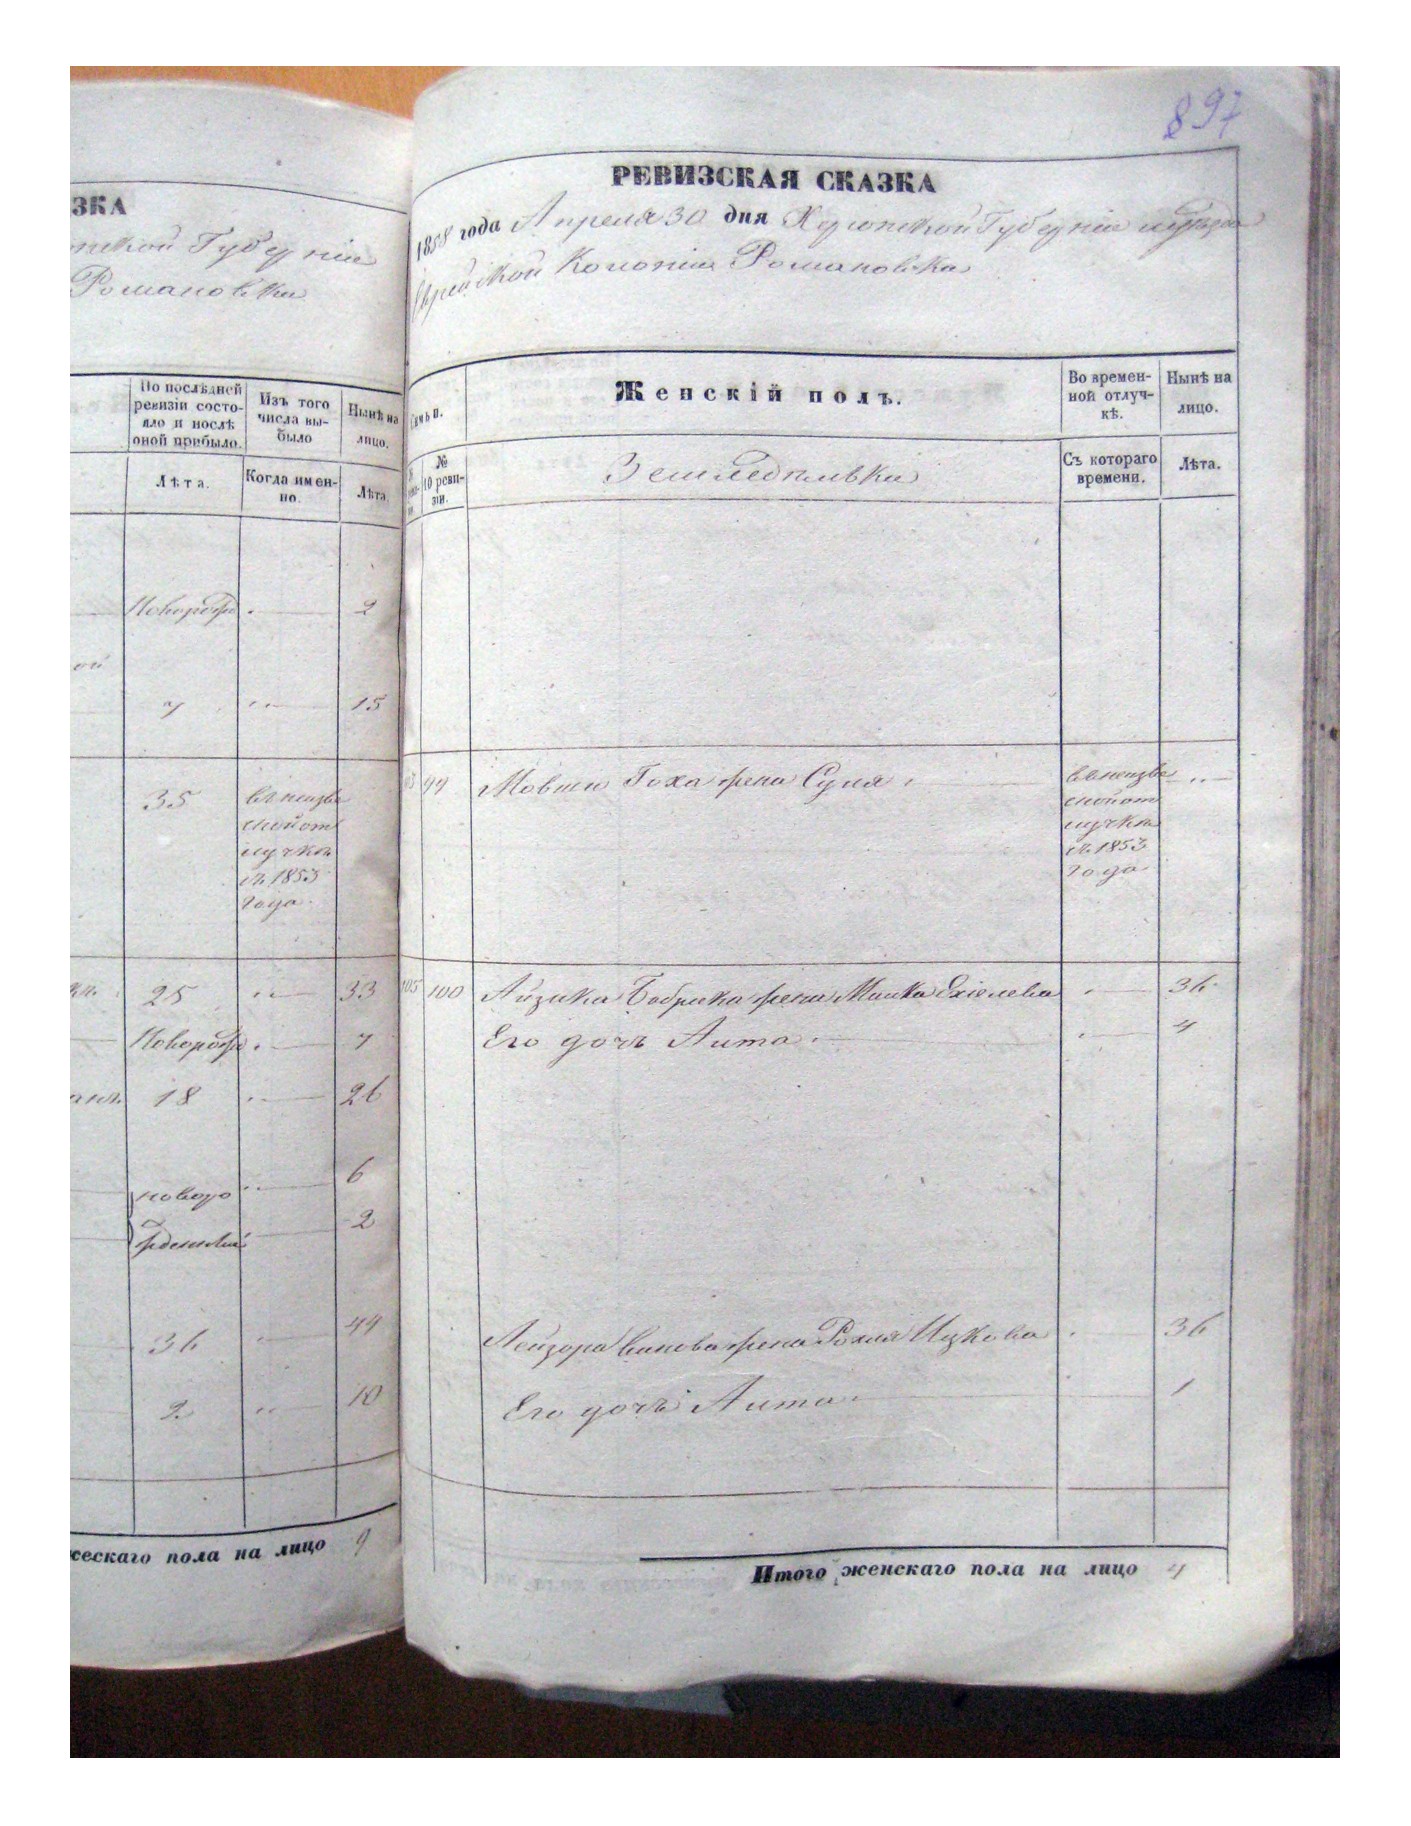 897
ЗКА
Губерніи
Романовки
По послѣдней
ревизіи состо-
яло и послѣ
оной прибыло.
Изъ того
числа вы-
было
Нынѣ на
лицо.
Лѣта.
Когда имен-
но.
Лѣта.
Новорож
2
ой
7
15
35
въ неизвѣ
стной от
лучкѣ
съ 1853
года
25
33
Новорож
7
18
26
новоро
6
жденный
2
36
44
2
10
ческаго пола на лицо 9
РЕВИЗСКАЯ СКАЗКА
1858 года Апреля 30 дня Херсонской Губерніи уѣзда
Еврейской Колоніи Романовка
Семьи.
Женскій полъ.
Во времен-
ной отлуч-
кѣ.
Нынѣ на
лицо.
№
10 реви-
зіи.
Земледѣлъки
Съ котораго
времени.
Лѣта.
99 Мовши Гоха жена Суля
въ неизвѣ
стной от
лучкѣ
съ 1853
года
105 100 Айзика Бобрика жена Малка Яхіелева 36
Его дочь Лита 4
Лейзора жена Рохля Ицкова 36
Его дочь Лита 1
Итого женскаго пола на лицо 4